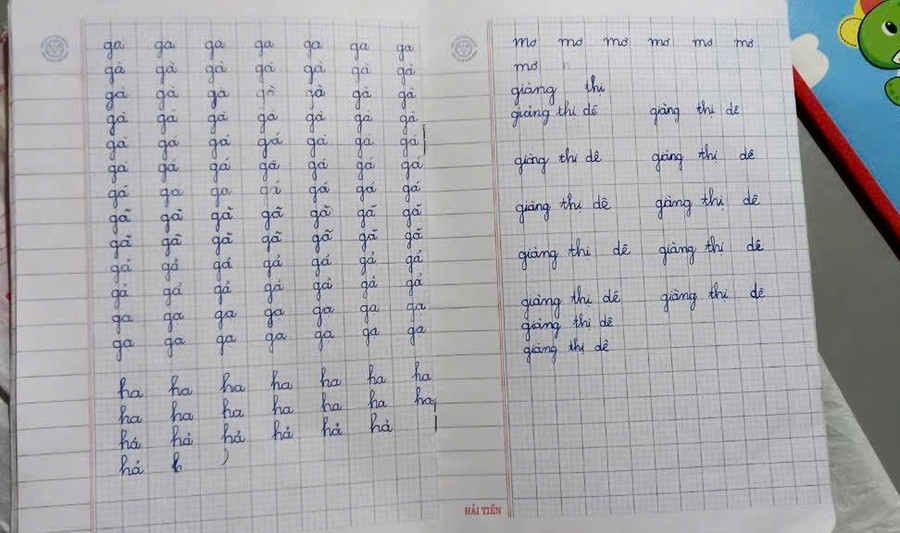 ga ga ga ga ga ga ga
gà gà gà gà gà gà gà
gà gà gà gà gà gà gà
gá gá gá gá gá gá gá
gá gá gá gá gá gá gá
gá gá gá gá gá gá gá
gá ga ga gá gá gá gá
gã gã gã gã gã gã gã
gã gã gã gã gã gã gã
gả gả gả gả gả gả gả
gả gả gả gả gả gả gả
gạ gạ gạ gạ gạ gạ gạ
gạ gạ gạ gạ gạ gạ gạ
ha ha ha ha ha ha ha
ha ha ha ha ha ha ha
hả hả hả hả hả hả
hả
mơ mơ mơ mơ mơ mơ
mơ
giàng thị
giàng thị dê giàng thị dê
giàng thị dê giàng thị dê
giàng thị dê giàng thị dê
giàng thị dê giàng thị dê
giàng thị dê giàng thị dê
giàng thị dê
giàng thị dê
HẢI TIẾN